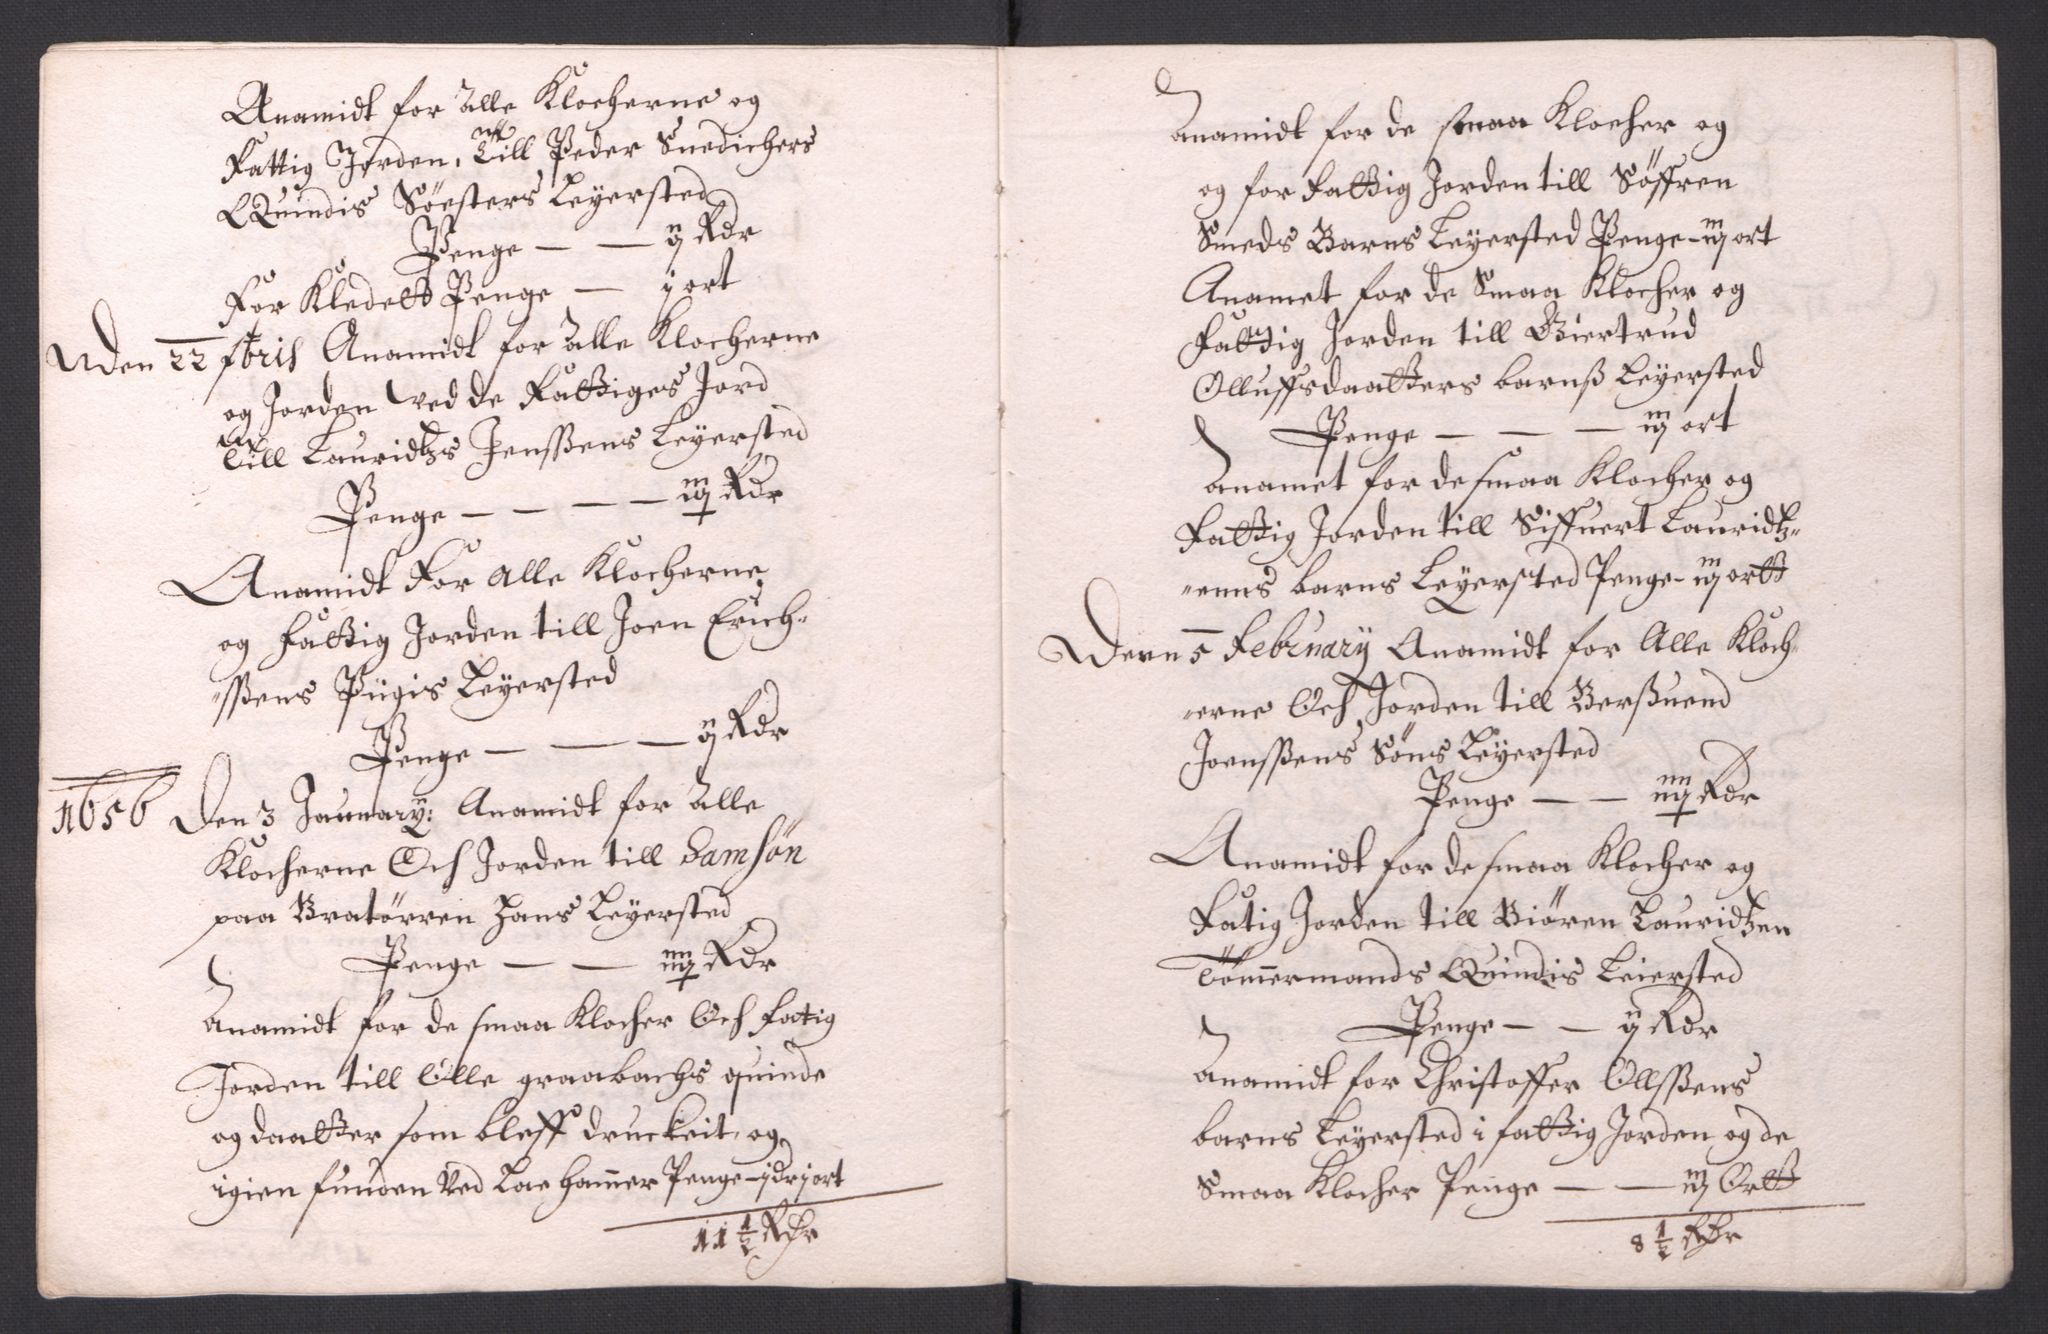 Anamidt for Alle Klocherne og
Fattig Jorden, Till Peder Snedichers
Quindis Söesters Leyersted
Penge — — ij Rdr
For Kledett Penge — j ort
Den 22 fbris Anamidt for Alle Klocherne
og Jorden ved de Fattiges Jord
Till Lauridtzs Jenssens Leyersted
Penge — — — — iij Rdr
Anamidt For Alle Klocherne
og fattig Jorden till Joen Erich-
-ssens Piigis Leyersted
Penge — — — ij Rdr
1656 Den 3 January: Anamidt for Alle
Klocherne Och Jorden till Samsön
paa Bratörren hans Leyersted
Penge — — iiij Rdr
Anamidt for de smaa Klocher Och fattig
Jorden till Olle graabachs quinde
og daatter som bleff druckeit, og
igien funden Ved Lae hamer Penge - j dr j ort
11 1/2 Rdr
Anamidt for de smaa Klocher og
og for Fattig Jorden till Söffren
Smeds Barns Leyersted Penge - iij ort
Anamet for de Smaa Klocher og
Fattig Jorden till Giertrud
Olluffsdaatters barnß Leyersted
Penge — — — iij ort
Anamet for de smaa Klocher og
Fattig Jorden till Siffuert Lauridtz-
-enns barns Leyersted Penge - iij ortt
Denn 5 February Anamidt for Alle Kloch-
-erne Och Jorden till Berßuend
Joenssens Söns Leyersted
Penge — — iiij Rdr
Anamidt for de smaa Klocher og
Fatig Jorden till Biören Lauridtzen
Tömermands Quindis Leiersted
Penge — — ij Rdr
Anamidt for Christoffer Ollssens
barns Leyersted i fattig Jorden og de
Smaa Klocher Penge — — iij Ortt
8 1/2 Rdr